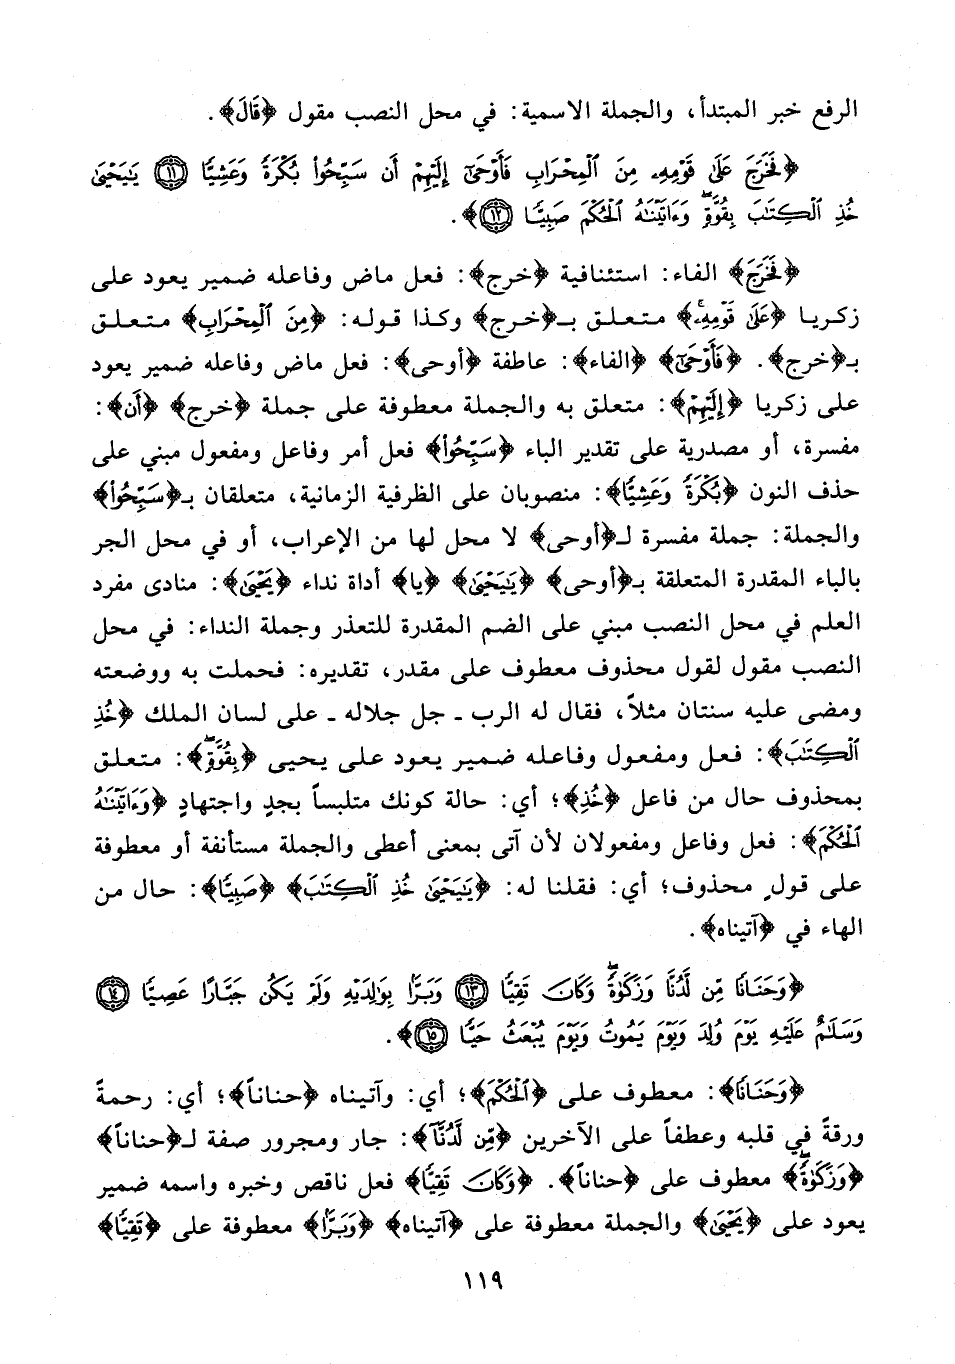 الرفع خبر المبتدأ، والجملة الاسمية: في محل النصب مقول ﴿قَالَ﴾.
﴿فَخَرَجَ عَلَىٰ قَوْمِهِۦ مِنَ ٱلْمِحْرَابِ فَأَوْحَىٰٓ إِلَيْهِمْ أَن سَبِّحُوا۟ بُكْرَةً وَعَشِيًّا ١١ يَٰيَحْيَىٰ
خُذِ ٱلْكِتَٰبَ بِقُوَّةٍۖ وَءَاتَيْنَٰهُ ٱلْحُكْمَ صَبِيًّا ١٢﴾.
﴿فَخَرَجَ﴾ الفاء: استئنافية ﴿خرج﴾: فعل ماض وفاعله ضمير يعود على
زكريا ﴿عَلَىٰ قَوْمِهِۦ﴾ متعلق بـ﴿خرج﴾ وكذا قوله: ﴿مِنَ ٱلْمِحْرَابِ﴾ متعلق
بـ﴿خرج﴾. ﴿فَأَوْحَىٰٓ﴾ ﴿الفاء﴾: عاطفة ﴿أوحى﴾: فعل ماض وفاعله ضمير يعود
على زكريا ﴿إِلَيْهِمْ﴾: متعلق به والجملة معطوفة على جملة ﴿خرج﴾ ﴿أَن﴾:
مفسرة، أو مصدرية على تقدير الباء ﴿سَبِّحُوا۟﴾ فعل أمر وفاعل ومفعول مبني على
حذف النون ﴿بُكْرَةً وَعَشِيًّا﴾: منصوبان على الظرفية الزمانية، متعلقان بـ﴿سَبِّحُوا۟﴾
والجملة: جملة مفسرة لـ﴿أوحى﴾ لا محل لها من الإعراب، أو في محل الجر
بالباء المقدرة المتعلقة بـ﴿أوحى﴾ ﴿يَٰيَحْيَىٰ﴾ ﴿يا﴾ أداة نداء ﴿يَحْيَىٰ﴾: منادى مفرد
العلم في محل النصب مبني على الضم المقدرة للتعذر وجملة النداء: في محل
النصب مقول لقول محذوف معطوف على مقدر، تقديره: فحملت به ووضعته
ومضى عليه سنتان مثلاً، فقال له الرب ـ جل جلاله ـ على لسان الملك ﴿خُذِ
ٱلْكِتَٰبَ﴾: فعل ومفعول وفاعله ضمير يعود على يحيى ﴿بِقُوَّةٍۖ﴾: متعلق
بمحذوف حال من فاعل ﴿خُذِ﴾؛ أي: حالة كونك متلبساً بجدٍ واجتهادٍ ﴿وَءَاتَيْنَٰهُ
ٱلْحُكْمَ﴾: فعل وفاعل ومفعولان لأن آتى بمعنى أعطى والجملة مستأنفة أو معطوفة
على قولٍ محذوف؛ أي: فقلنا له: ﴿يَٰيَحْيَىٰ خُذِ ٱلْكِتَٰبَ﴾ ﴿صَبِيًّا﴾: حال من
الهاء في ﴿آتيناه﴾.
﴿وَحَنَانًا مِّن لَّدُنَّا وَزَكَوٰةًۖ وَكَانَ تَقِيًّا ١٣ وَبَرًّۢا بِوَٰلِدَيْهِ وَلَمْ يَكُن جَبَّارًا عَصِيًّا ١٤
وَسَلَٰمٌ عَلَيْهِ يَوْمَ وُلِدَ وَيَوْمَ يَمُوتُ وَيَوْمَ يُبْعَثُ حَيًّا ١٥﴾.
﴿وَحَنَانًا﴾: معطوف على ﴿ٱلْحُكْمَ﴾؛ أي: وآتيناه ﴿حناناً﴾؛ أي: رحمةً
ورقةً في قلبه وعطفاً على الآخرين ﴿مِّن لَّدُنَّا﴾: جار ومجرور صفة لـ﴿حناناً﴾
﴿وَزَكَوٰةًۖ﴾ معطوف على ﴿حناناً﴾. ﴿وَكَانَ تَقِيًّا﴾ فعل ناقص وخبره واسمه ضمير
يعود على ﴿يَحْيَىٰ﴾ والجملة معطوفة على ﴿آتيناه﴾ ﴿وَبَرًّۢا﴾ معطوفة على ﴿تَقِيًّا﴾
١١٩